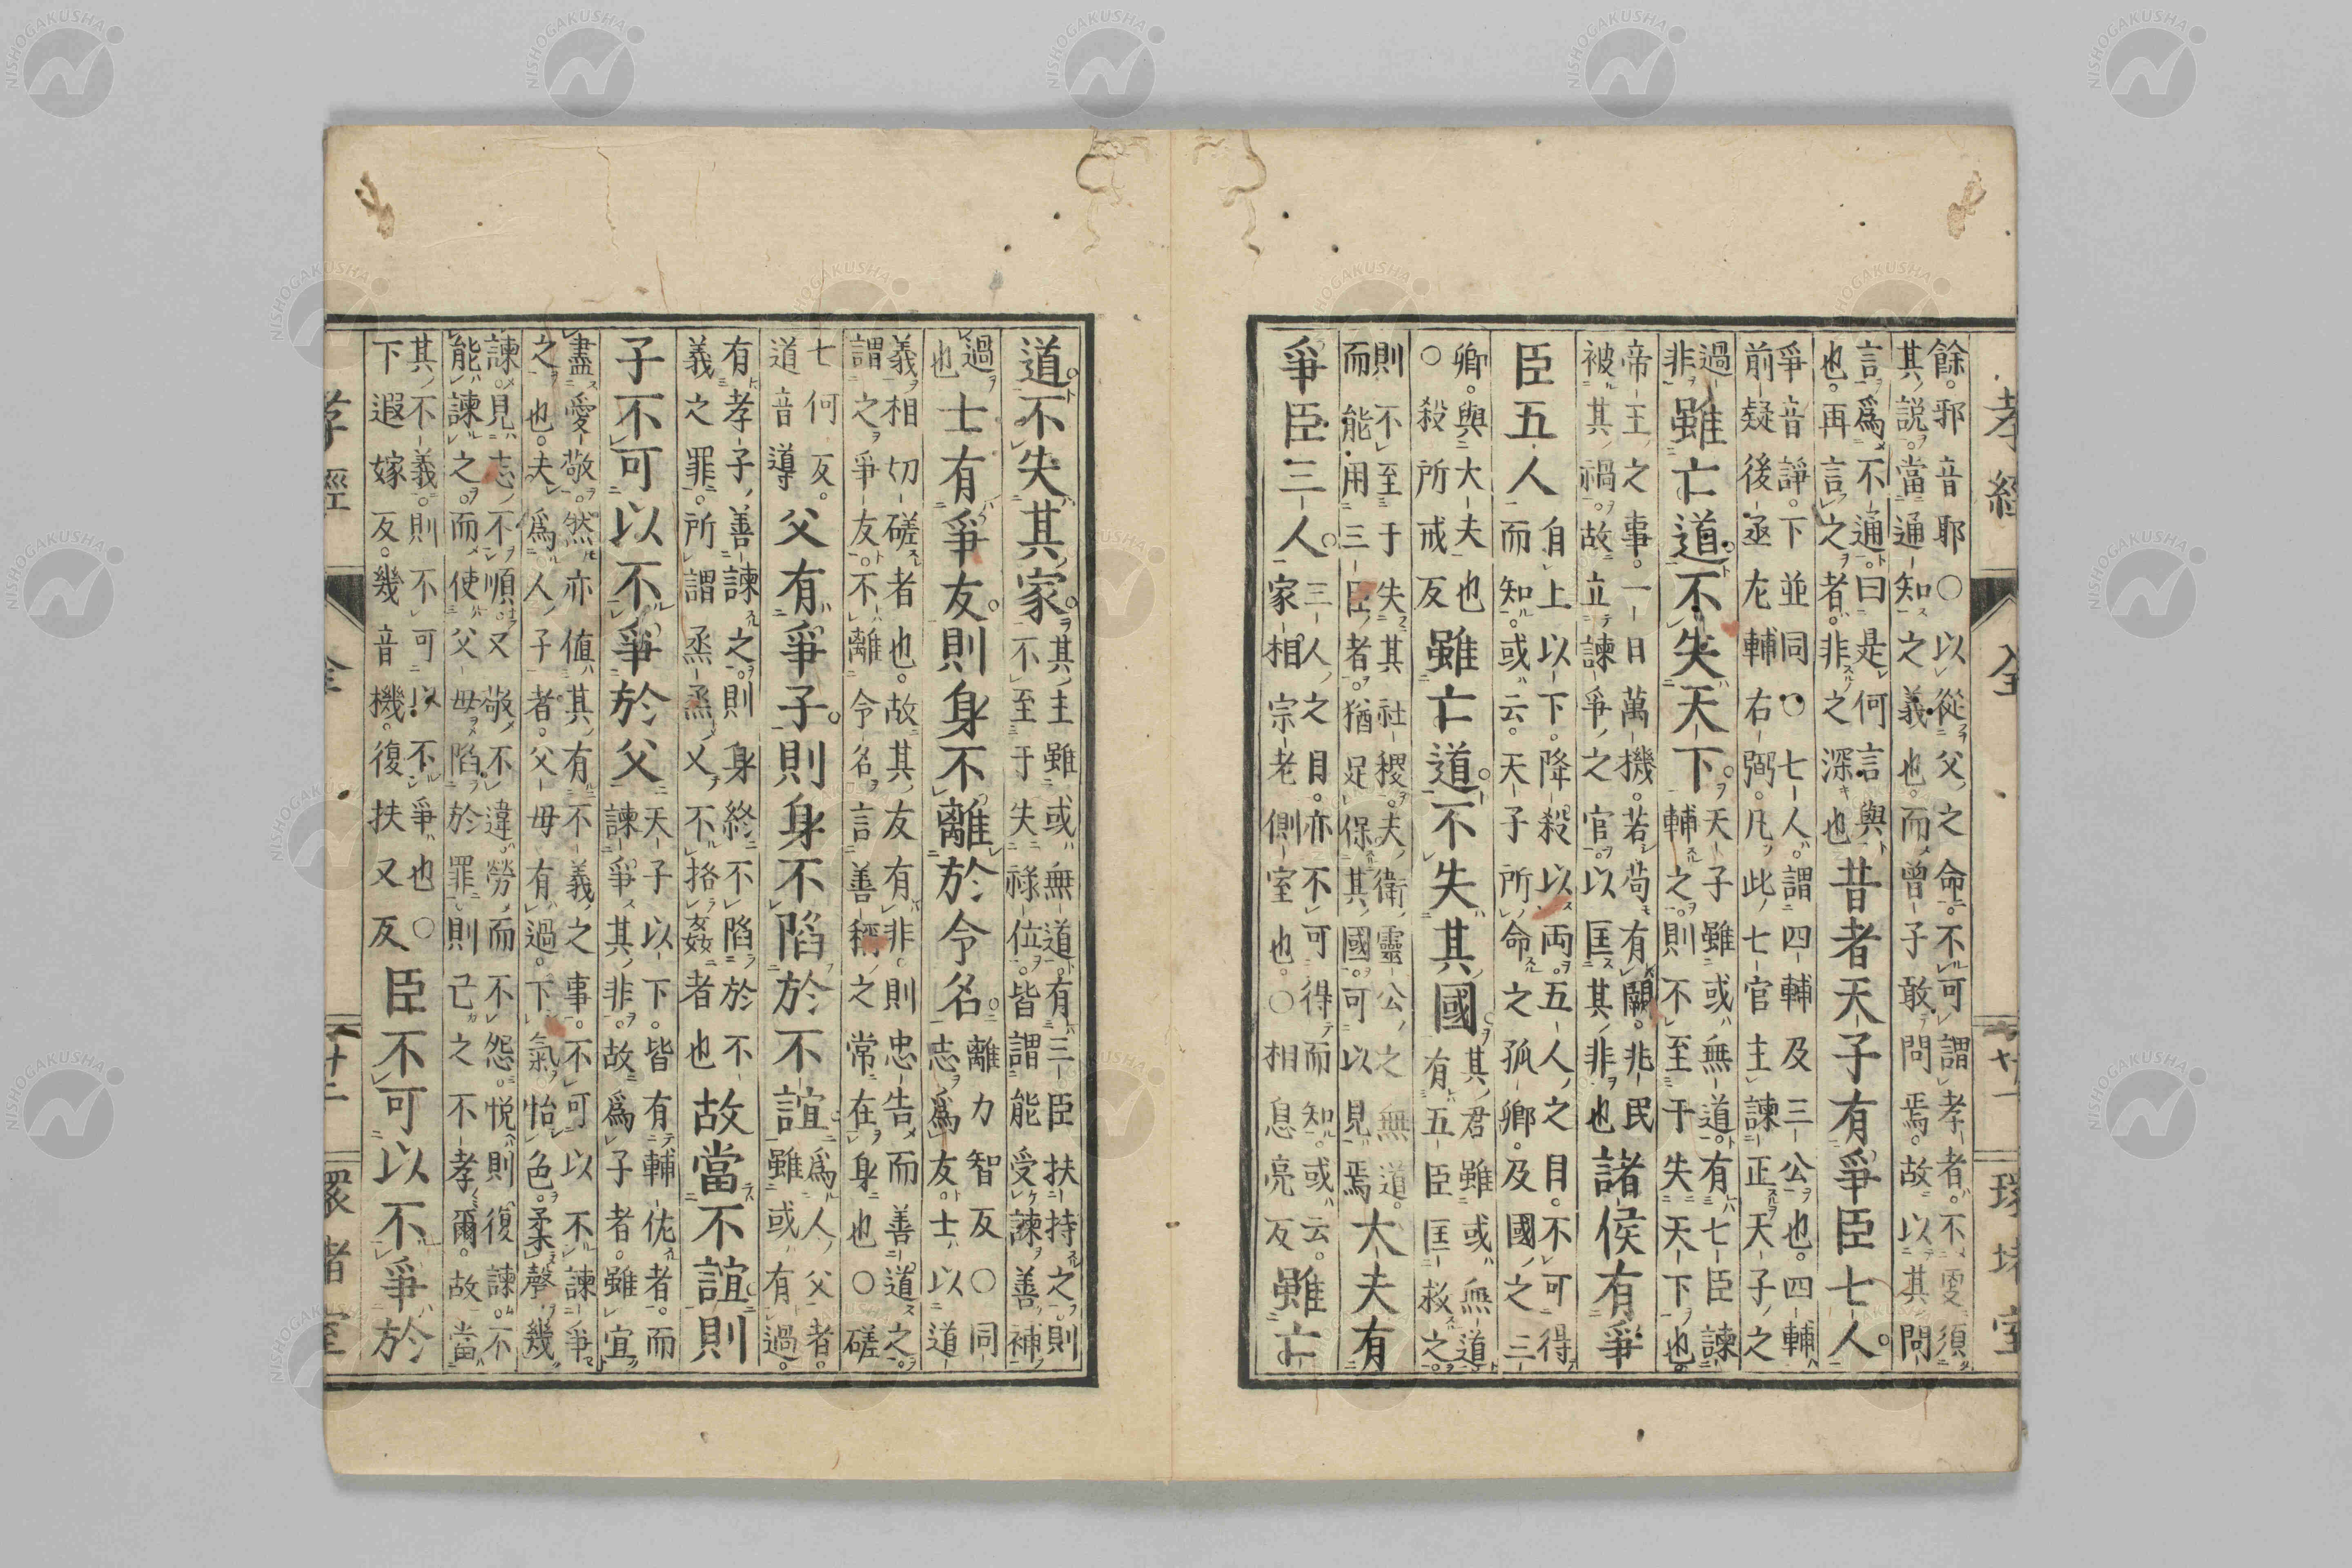 孝經 全 廿一 環堵室
餘。邪音耶○以從父之命。不可謂孝者。不更須
其說。當通知之義也。而曾子敢問焉。故以其問
言爲不通曰是何言與
也。再言之者。非之深也
昔者天子有爭臣七人。
爭音諍。下並同○七人。謂四輔及三公也。四輔
前疑後丞左輔右弼。凡此七官主諫正天子之
過
非
雖亡道不失天下。
天子雖或無道。有七臣諫
輔之。則不至于失天下也。
帝王之事。一日萬機。若尚有闕。兆民
被其禍。故立諫爭之官。以匡其非也
諸侯有爭
臣五人
自上以下。降殺以兩。五人之目。不可得
而知。或云。天子所命之孤卿。及國之三
卿。與大夫也
○殺所戒反
雖亡道。不失其國。
其君雖或無道
有五臣匡救之。
則不至于失其社稷。夫衛靈公之無道。
而能用三臣者。猶足保其國。可以見焉
大夫有
爭臣三人。
三人之目。亦不可得而知。或云。
家相宗老側室也。○相息亮反
雖亡
道。不失其家。
其主雖或無道。有三臣扶持之。則
不至于失祿位。皆謂能受諫善補
過
也
士有爭友。則身不離於令名。
離力智反○同
志爲友。士以道
義相切磋者也。故其友有非。則忠告而善道之。
謂之爭友。不離令名。言善稱之常在身也○磋
七何反。
道音導
父有爭子。則身不陷於不誼
爲人父者。
雖或有過。
有孝子善諫之。則身終不陷於不
義之罪。所謂烝烝乂不挌姦者也
故當不誼則
子不可以不爭於父
天子以下。皆有輔佐者。而
諫爭其非。故爲子者。雖宜
盡愛敬。然亦値其有不義之事。不可以不諫爭
之也。夫爲人子者。父母有過。下氣怡色。柔聲幾
諫。見志不順。又敬不違。勞而不怨。悅則復諫。不
能諫之。而使父母陷於罪。則己之不孝爾。故當
其不義。則不可以不爭也○
下遐嫁反。幾音機。復扶又反
臣不可以不爭於
孝經 全 廿二 環堵室
NISHOGAKUSHA